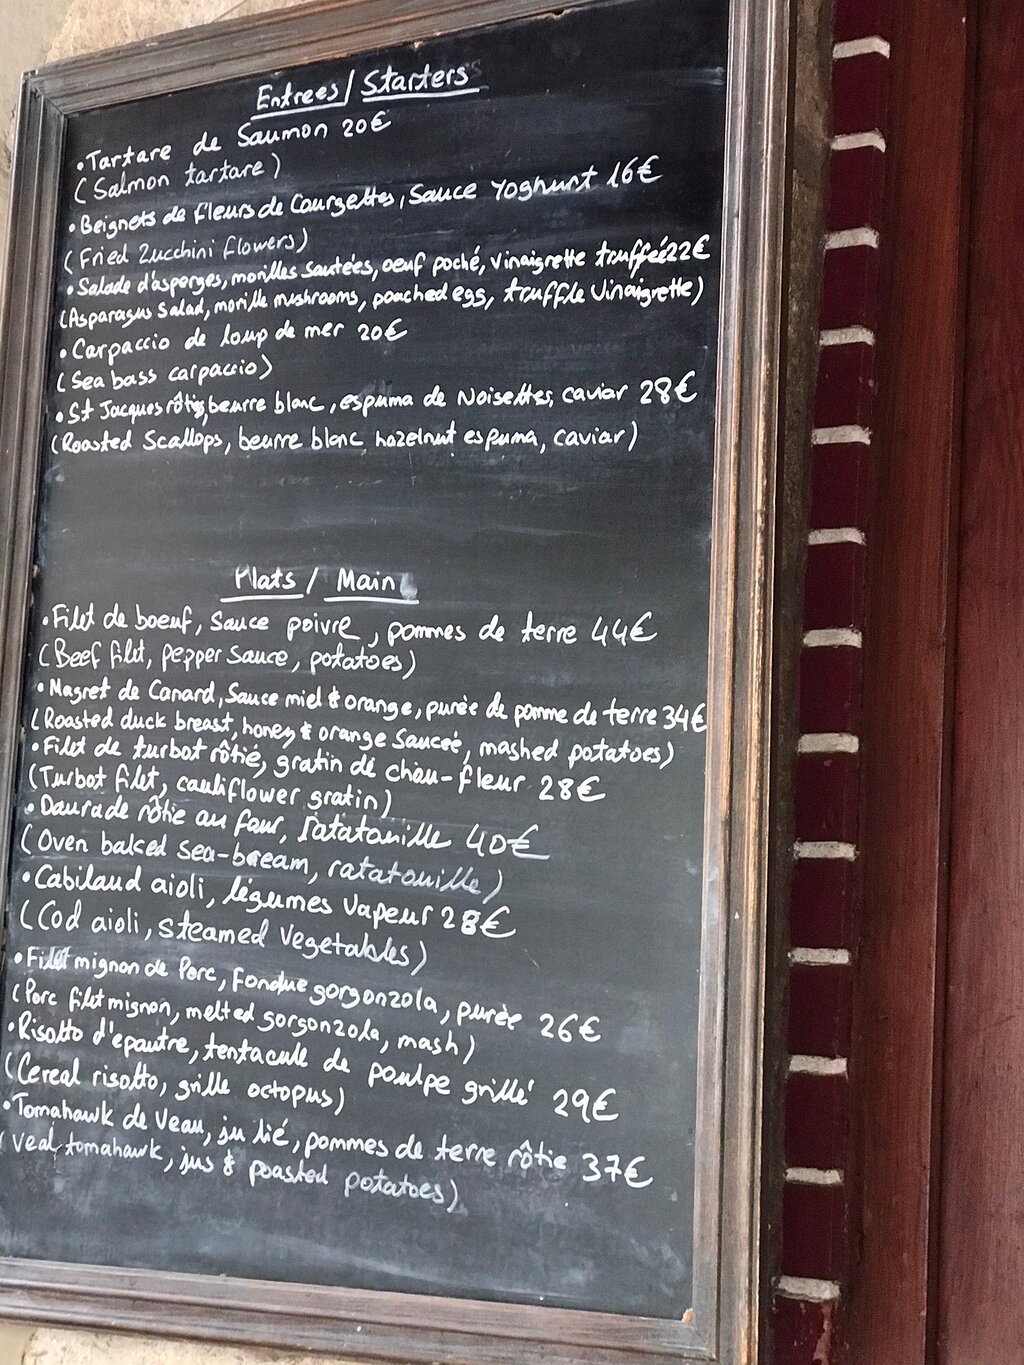 Entrees / Starters
• Tartare de Saumon 20€
(Salmon tartare)
• Beignets de fleurs de Courgettes, Sauce Yoghurt 16€
(Fried Zucchini flowers)
• Salade d'asperges, morilles sautées, oeuf poché, vinaigrette truffée 22€
(Asparagus Salad, morille mushrooms, poached egg, truffle vinaigrette)
• Carpaccio de loup de mer 20€
(Sea bass carpaccio)
• St Jacques rôtis, beurre blanc, espuma de Noisettes, caviar 28€
(Roasted Scallops, beurre blanc hazelnut espuma, caviar)
Plats / Main
• Filet de boeuf, Sauce poivre, pommes de terre 44€
(Beef filet, pepper sauce, potatoes)
• Magret de Canard, Sauce miel & orange, purée de pomme de terre 34€
(Roasted duck breast, honey & orange Saucée, mashed potatoes)
• Filet de turbot rôtié, gratin de chou-fleur 28€
(Turbot filet, cauliflower gratin)
• Daurade rôtie au four, ratatouille 40€
(Oven baked sea-bream, ratatouille)
• Cabilaud aioli, légumes vapeur 28€
(Cod aioli, steamed vegetables)
• Filet mignon de Porc, fondue gorgonzola, purée 26€
(Porc filet mignon, melted gorgonzola, mash)
• Risotto d'epautre, tentacule de poulpe grillé 29€
(Cereal risotto, grille octopus)
• Tomahawk de Veau, ju lié, pommes de terre rôtie 37€
(Veal tomahawk, jus & poasted potatoes)